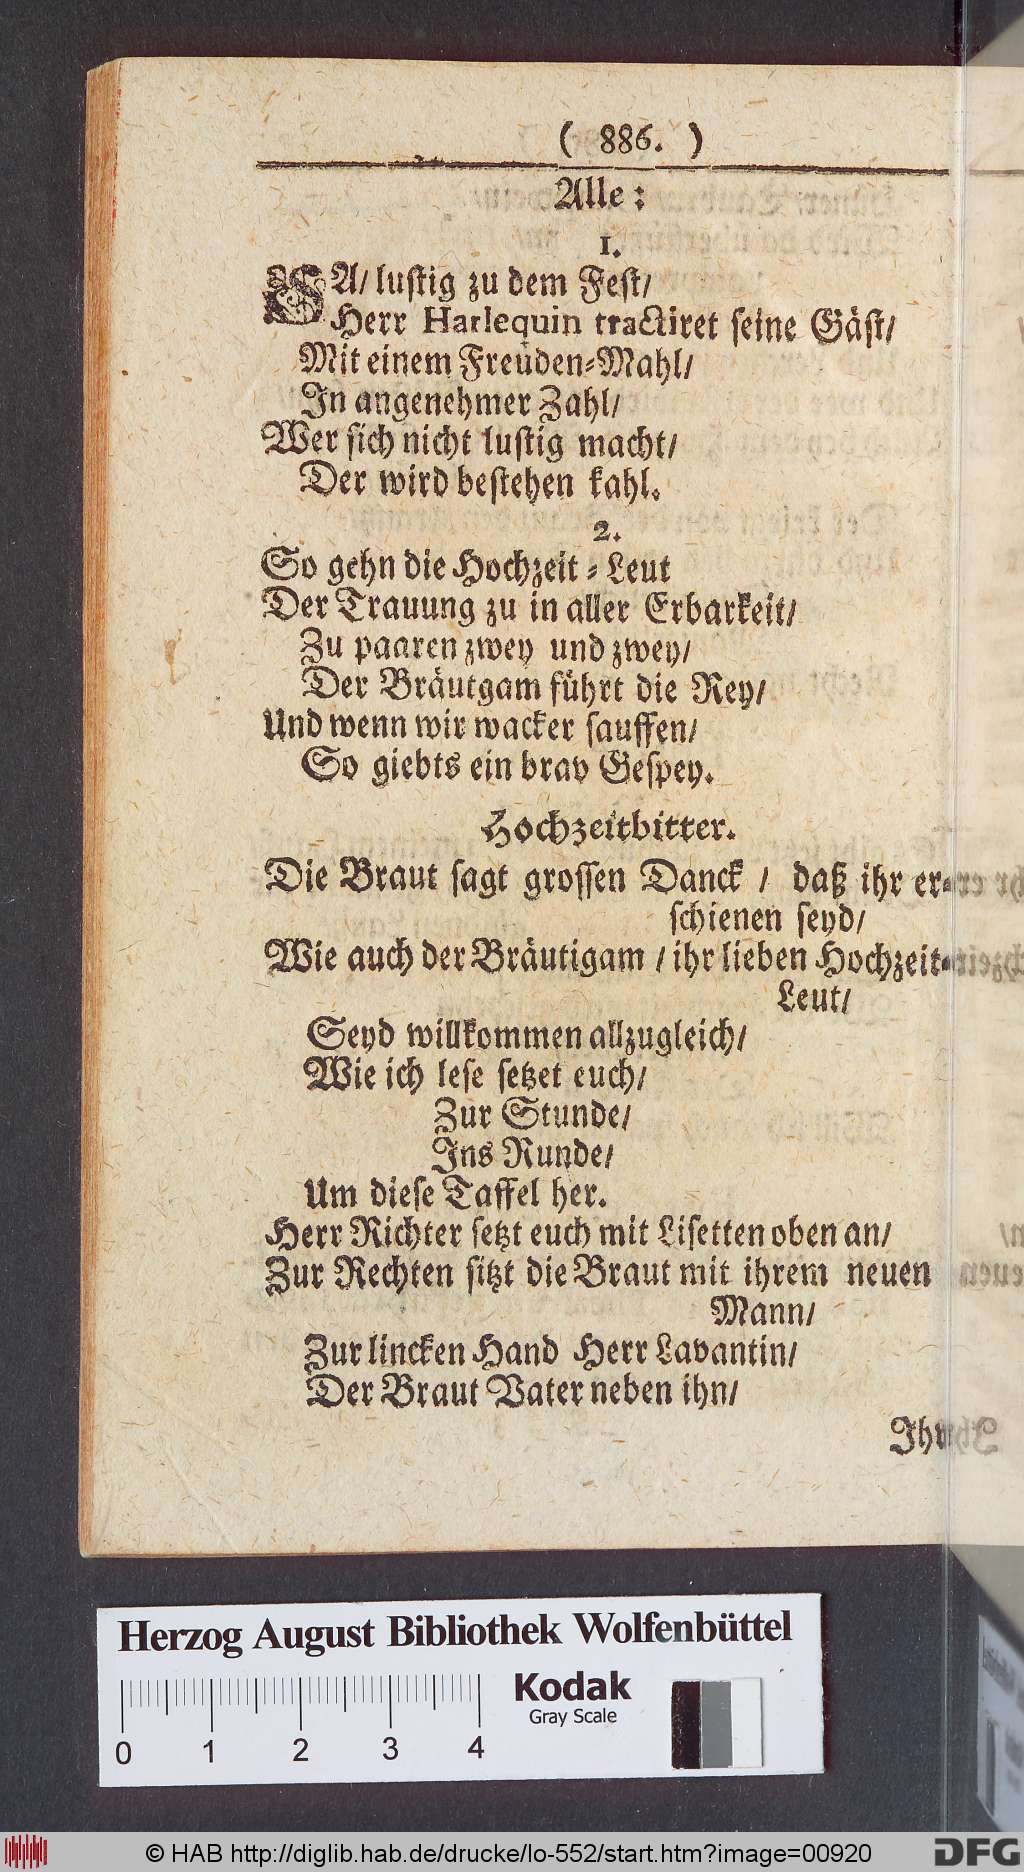 ( 886. )
Alle:
1.
JA/ lustig zu dem Fest/
Herr Harlequin tractiret seine Gäst/
Mit einem Freuden-Mahl/
In angenehmer Zahl/
Wer sich nicht lustig macht/
Der wird bestehen kahl.
2.
So gehn die Hochzeit-Leut
Der Trauung zu in aller Erbarkeit/
Zu paaren zwey und zwey/
Der Bräutgam führt die Rey/
Und wenn wir wacker sauffen/
So giebts ein brav Gespey.
Hochzeitbitter.
Die Braut sagt grossen Danck / daß ihr er-
schienen seyd/
Wie auch der Bräutigam / ihr lieben Hochzeit-
Leut/
Seyd willkommen allzugleich/
Wie ich lese setzet euch/
Zur Stunde/
Ins Runde/
Um diese Taffel her.
Herr Richter setzt euch mit Lisetten oben an/
Zur Rechten sitzt die Braut mit ihrem neuen
Mann/
Zur lincken Hand Herr Lavantin/
Der Braut Vater neben ihn/
Herzog August Bibliothek Wolfenbüttel
Kodak
Gray Scale
0 1 2 3 4
© HAB http://diglib.hab.de/drucke/lo-552/start.htm?image=00920
DFG